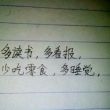 多读书，多看报，
少吃零食，多睡觉，